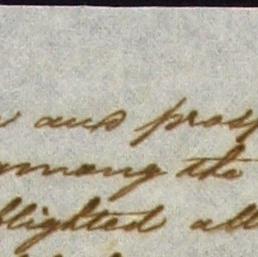 and prosp
among the
blighted all